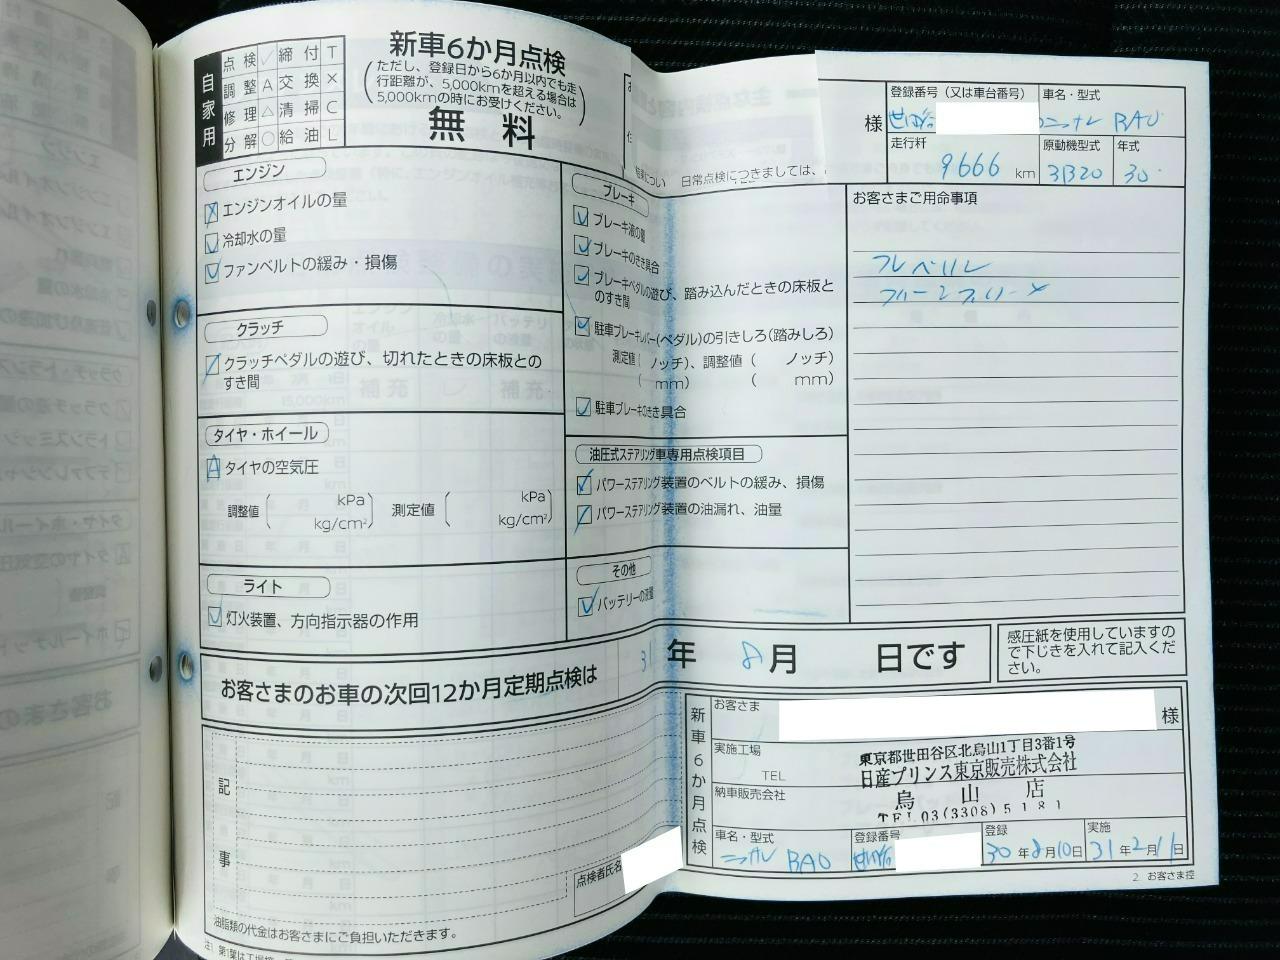 自家用
点検 ✓ 締付 T
調整 A 交換 ×
修理 △ 清掃 C
分解 ○ 給油 L
新車6か月点検
(ただし、登録日から6か月以内でも走
行距離が、5,000kmを超える場合は
5,000kmの時にお受けください。)
無料
様
登録番号(又は車台番号)
車名・型式
走行粁
9666 km
原動機型式
3B20
年式
30
日常点検につきましては、
エンジン
エンジンオイルの量
冷却水の量
ファンベルトの緩み・損傷
クラッチ
クラッチペダルの遊び、切れたときの床板との
すき間
タイヤ・ホイール
タイヤの空気圧
調整値 ( kPa kg/cm²) 測定値 ( kPa kg/cm²)
ライト
灯火装置、方向指示器の作用
ブレーキ
ブレーキ液の量
ブレーキのきき具合
ブレーキペダルの遊び、踏み込んだときの床板と
のすき間
駐車ブレーキレバー(ペダル)の引きしろ(踏みしろ)
測定値( ノッチ)、調整値( ノッチ)
( mm) ( mm)
駐車ブレーキのきき具合
油圧式ステアリング車専用点検項目
パワーステアリング装置のベルトの緩み、損傷
パワーステアリング装置の油漏れ、油量
その他
バッテリーの液量
お客さまご用命事項
お客さまのお車の次回12か月定期点検は 31年 8月 日です
感圧紙を使用していますの
で下じきを入れて記入くだ
さい。
記事
点検者氏名
油脂類の代金はお客さまにご負担いただきます。
新車6か月点検
お客さま 様
実施工場
TEL
納車販売会社
東京都世田谷区北烏山1丁目3番1号
日産プリンス東京販売株式会社
烏山店
TEL 03(3308)5181
車名・型式
登録番号
登録
30年8月10日
実施
31年2月11日
2. お客さま控